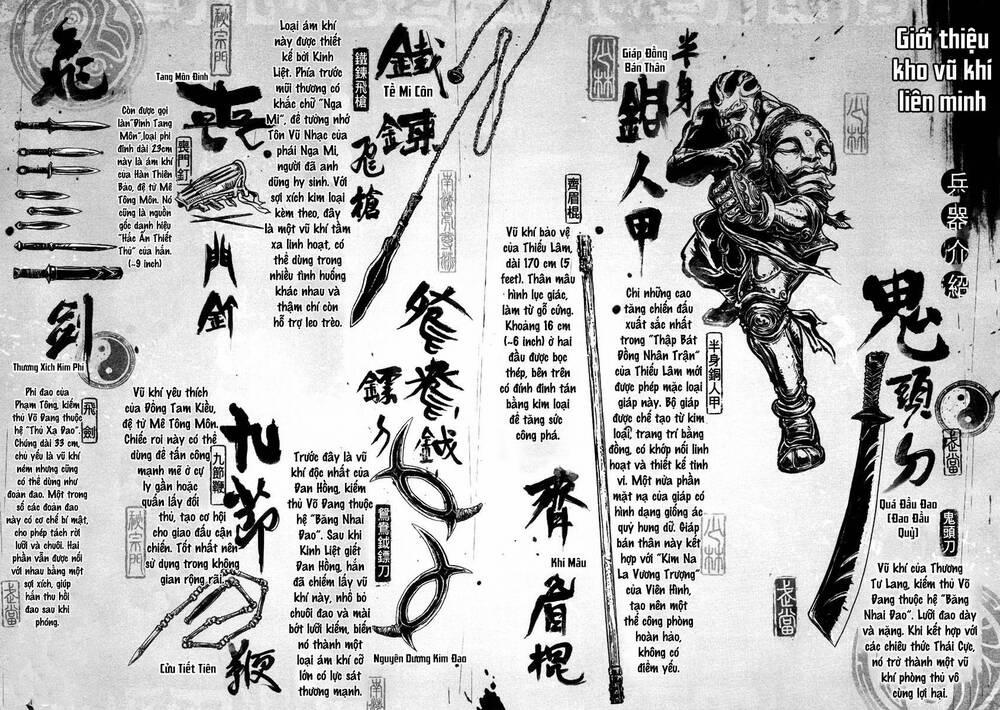 Giới thiệu
kho vũ khí
liên minh
兵器介紹
鬼頭刀
武當
Quá Đầu Đao
(Đao Đầu
Quỷ)
鬼頭刀
Vũ khí của Thương
Tư Lang, kiếm thủ Võ
Đang thuộc hệ "Băng
Nhai Đao". Lưỡi đao dày
và nặng. Khi kết hợp với
các chiêu thức Thái Cực,
nó trở thành một vũ
khí phòng thủ vô
cùng lợi hại.
武當
少林
Giáp Đồng
Bán Thân
半身
銅人甲
少林
半身銅人甲
Chỉ những cao
tăng chiến đấu
xuất sắc nhất
trong "Thập Bát
Đồng Nhân Trận"
của Thiếu Lâm mới
được phép mặc loại
giáp này. Bộ giáp
được chế tạo từ kim
loại, trang trí bằng
đồng, có khớp nối linh
hoạt và thiết kế tinh
vi. Một nửa phần
mặt nạ của giáp có
hình dạng giống ác
quỷ hung dữ. Giáp
bán thân này kết
hợp với "Kim Na
La Vương Trượng"
của Viên Hình,
tạo nên một
thế công phòng
hoàn hảo,
không có
điểm yếu.
少林
齊眉棍
Vũ khí bảo vệ
của Thiếu Lâm,
dài 170 cm (5
feet). Thân mâu
hình lục giác,
làm từ gỗ cứng.
Khoảng 16 cm
(~6 inch) ở hai
đầu được bọc
thép, bên trên
có đính đinh tán
bằng kim loại
để tăng sức
công phá.
齊
Khi Mâu
眉棍
鐵鍊
Tề Mi Côn
飛槍
鐵鍊飛槍
Loại ám khí
này được thiết
kế bởi Kinh
Liệt. Phía trước
mũi thương có
khắc chữ "Nga
Mi", để tưởng nhớ
Tôn Vũ Nhạc của
phái Nga Mi,
người đã anh
dũng hy sinh. Với
sợi xích kim loại
kèm theo, đây
là một vũ khí tầm
xa linh hoạt, có
thể dùng trong
nhiều tình huống
khác nhau và
thậm chí còn
hỗ trợ leo trèo.
鴛鴦鉞
鏢刀
鴛鴦鉞鏢刀
Trước đây là vũ
khí độc nhất của
Đan Hồng, kiếm
thủ Võ Đang thuộc
hệ "Băng Nhai
Đao". Sau khi
Kinh Liệt giết
Đan Hồng, hắn
đã chiếm lấy vũ
khí này, nhổ bỏ
chuôi đao và mài
bớt lưỡi kiếm, biến
nó thành một
loại ám khí cỡ
lớn có lực sát
thương mạnh.
Nguyên Dương Kim Đao
秘宗門
Tang Môn Đinh
喪
門釘
喪門釘
Còn được gọi
làn"Đinh Tang
Môn",loại phi
đinh dài 23cm
này là ám khí
của Hàn Thiên
Bảo, đệ tử Mê
Tông Môn. Nó
cũng là nguồn
gốc danh hiệu
"Hắc Ấn Thiết
Thủ" của hắn.
(~9 inch)
九節
鞭
九節鞭
Vũ khí yêu thích
của Đồng Tam Kiều,
đệ tử Mê Tông Môn.
Chiếc roi này có thể
dùng để tấn công
mạnh mẽ ở cự
ly gần hoặc
quấn lấy đối
thủ, tạo cơ hội
cho giao đấu cận
chiến. Tốt nhất nên
sử dụng trong không
gian rộng rãi.
秘宗門
Cửu Tiết Tiên
飛
劍
Thương Xích Kim Phi
飛劍
Phi đao của
Phạm Tông, kiếm
thủ Võ Đang thuộc
hệ "Thủ Xạ Đao".
Chúng dài 33 cm,
chủ yếu là vũ khí
ném nhưng cũng
có thể dùng như
đoản đao. Một trong
số các đoản đao
này có cơ chế bí mật,
cho phép tách rời
lưỡi và chuôi. Hai
phần vẫn được nối
với nhau bằng một
sợi xích, giúp
hắn thu hồi
đao sau khi
phóng.
武當